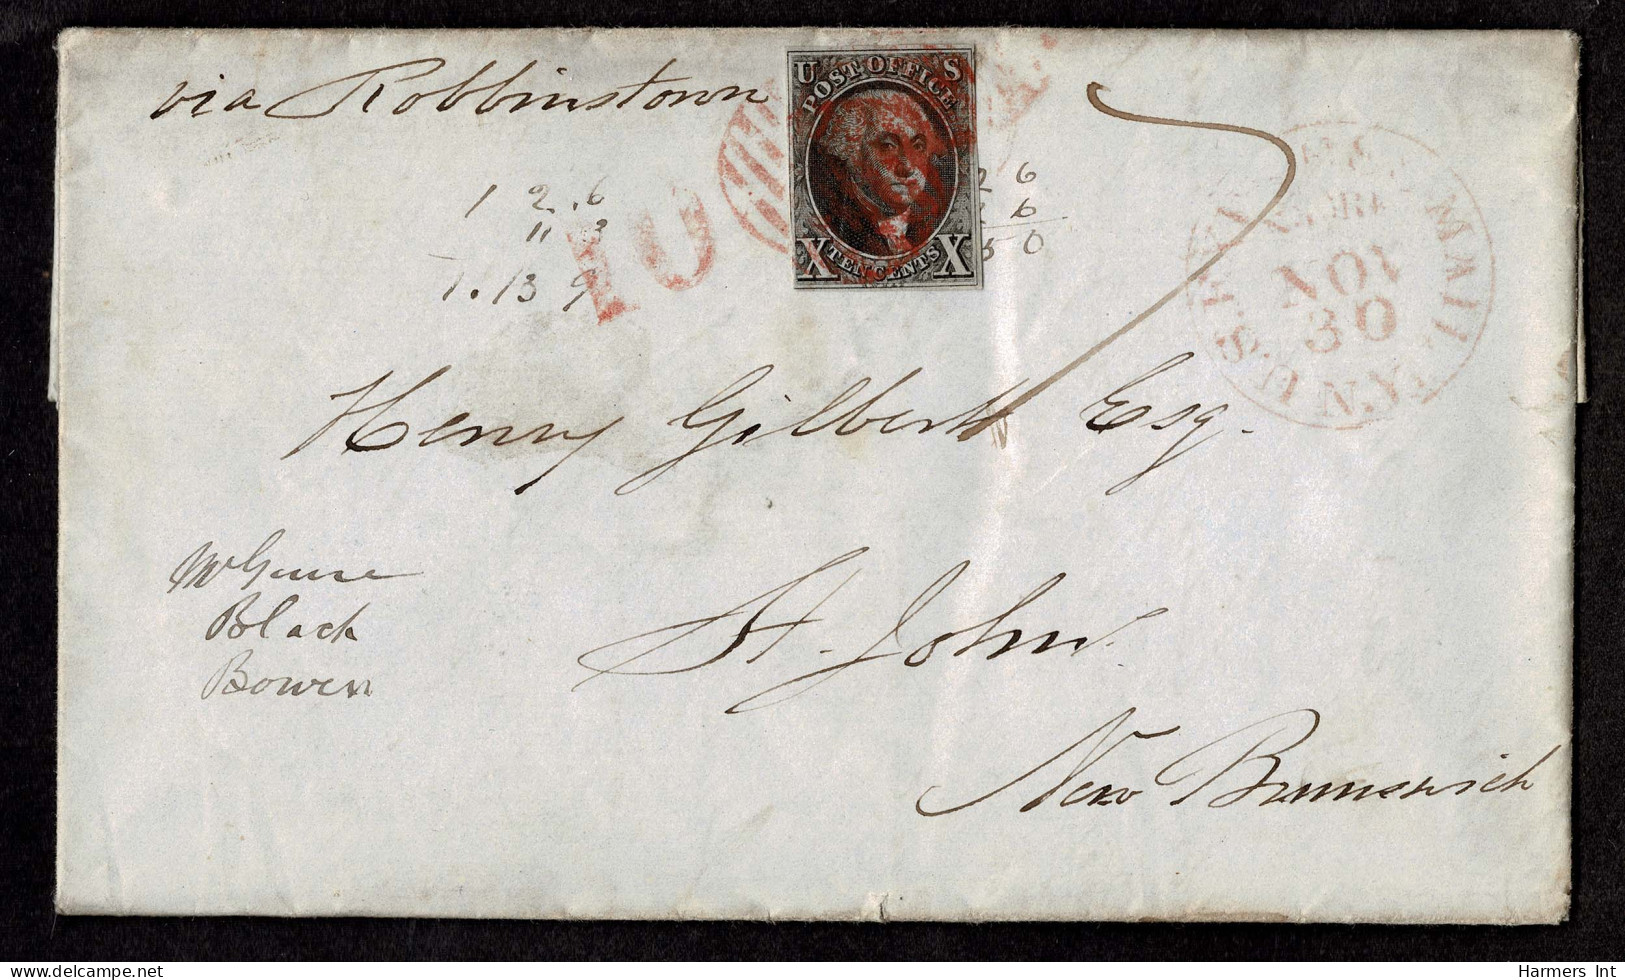 via Robbinstown
U S
POST OFFICE
X TEN CENTS X
10
1 2.6
11 3
1.13 9
2 6
6
5 0
U.S. EXPRESS MAIL N.Y.
NOV
30
7
Henry Gilbert Esq.
St. John.
New Brunswick
Black
Bowen
Harmers Int